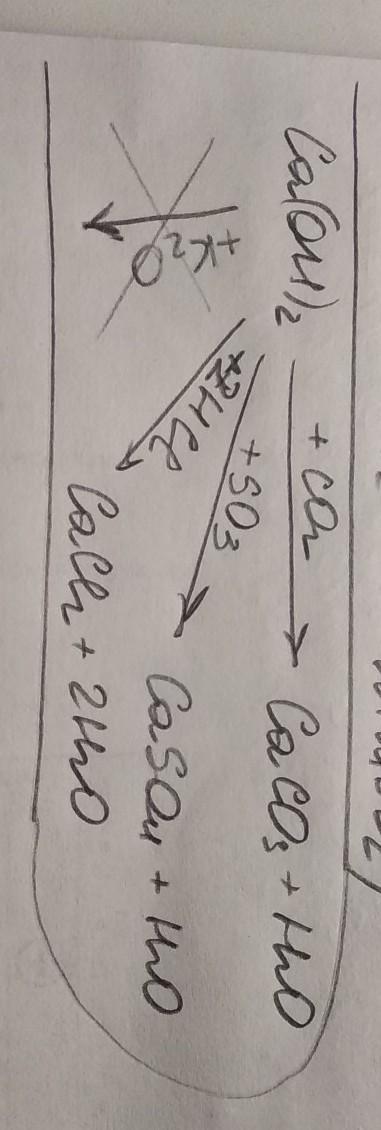 Ca(OH)2 + CO2 → CaCO3 + H2O
+ SO3 → CaSO4 + H2O
+ 2HCl → CaCl2 + 2H2O
+ K2O